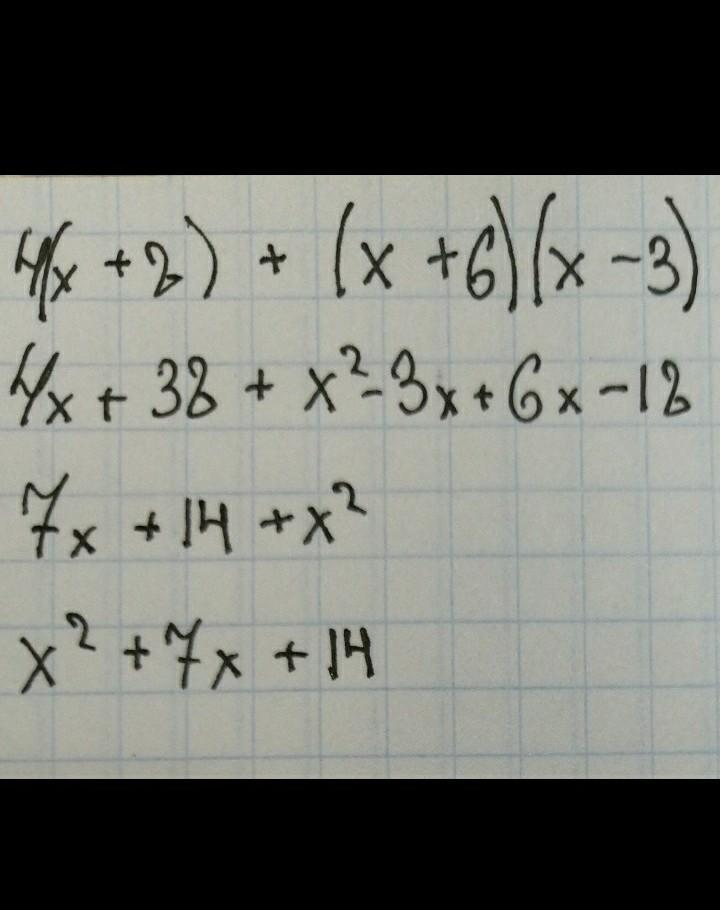 4(x + 2) + (x + 6)(x - 3)
4x + 38 + x² - 3x + 6x - 18
7x + 14 + x²
x² + 7x + 14